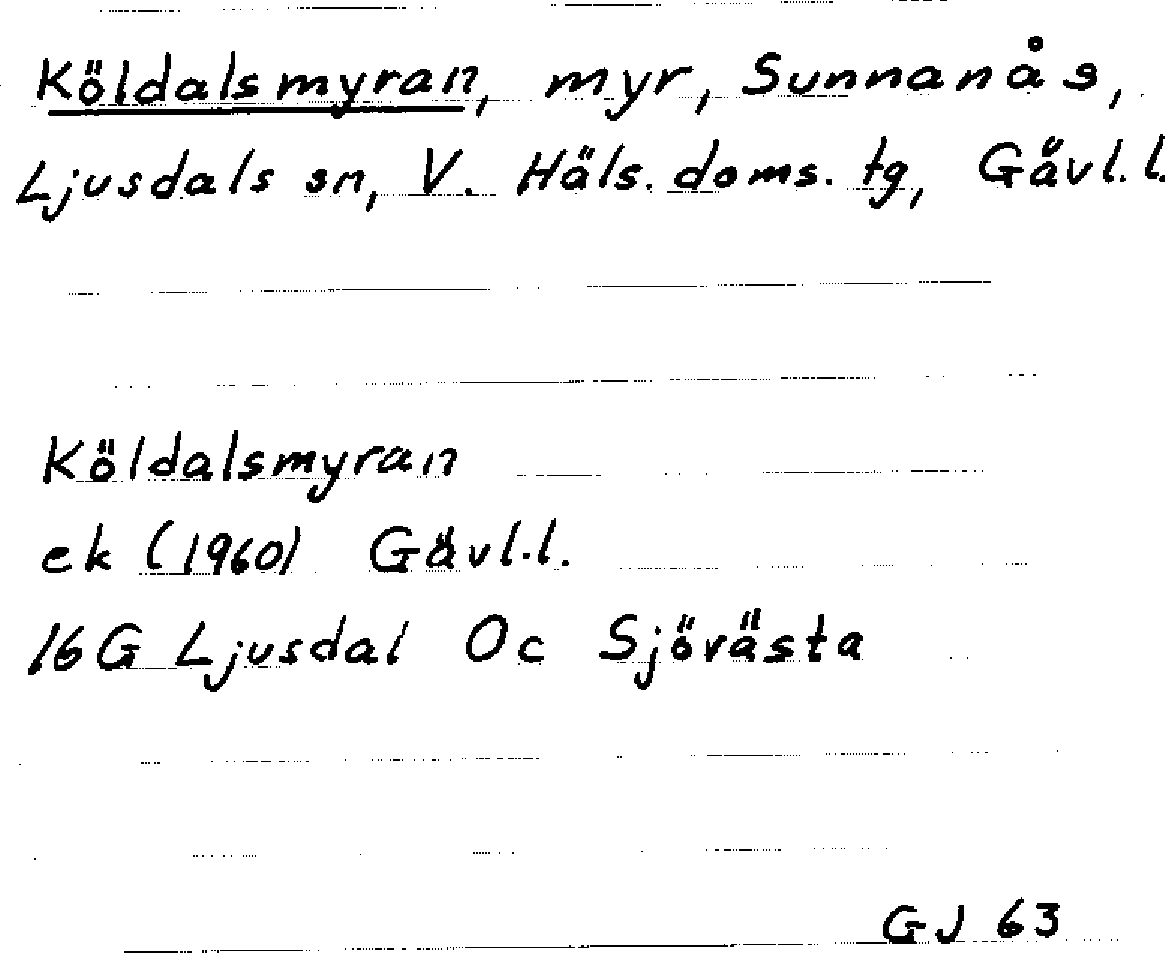 Köldalsmyran, myr, Sunnanås,
Ljusdals sn, V. Häls. doms. tg, Gävl.l.
Köldalsmyran
ek (1960) Gävl.l.
16G Ljusdal Oc Sjövästa
GJ 63